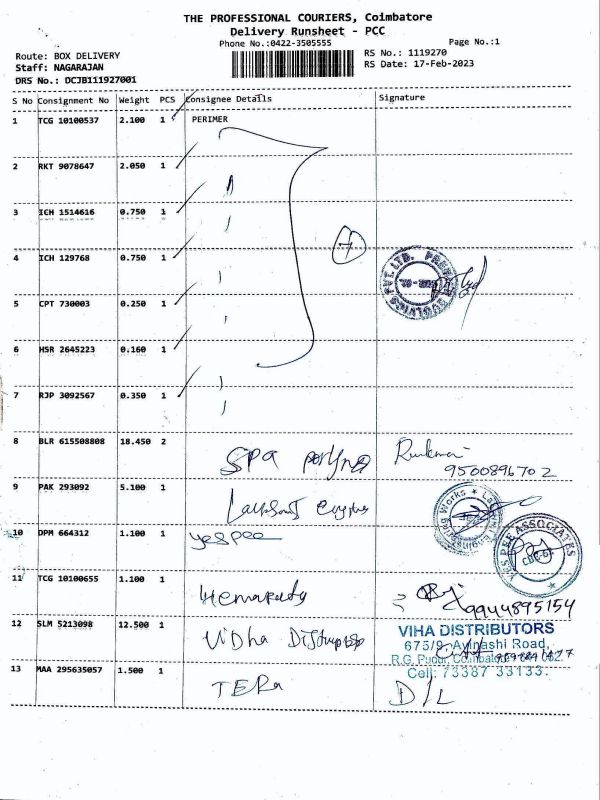 THE PROFESSIONAL COURIERS, Coimbatore
Delivery Runsheet - PCC
Phone No.:0422-3505555
Page No.:1
Route: BOX DELIVERY
RS No.: 1119270
Staff: NAGARAJAN
RS Date: 17-Feb-2023
DRS No.: DCJB111927001
S No Consignment No Weight PCS Consignee Details Signature
1 TCG 10100537 2.100 1 PERIMER
2 RKT 9078647 2.050 1
3 ICH 1514616 0.750 1
7
4 ICH 129768 0.750 1
5 CPT 730003 0.250 1
6 HSR 2645223 0.160 1
7 RJP 3092567 0.350 1
8 BLR 615508808 18.450 2 SPA
9500896702
9 PAK 293092 5.100 1
10 DPM 664312 1.100 1 yespee
YES PEE ASSOCIATES
11 TCG 10100655 1.100 1
9944895154
12 SLM 5213098 12.500 1 Vidha
VIHA DISTRIBUTORS
675/9, Avinashi Road,
R.G. Pudur, Coimbatore
Cell: 73387 33133.
13 MAA 295635057 1.500 1 TERA D/L